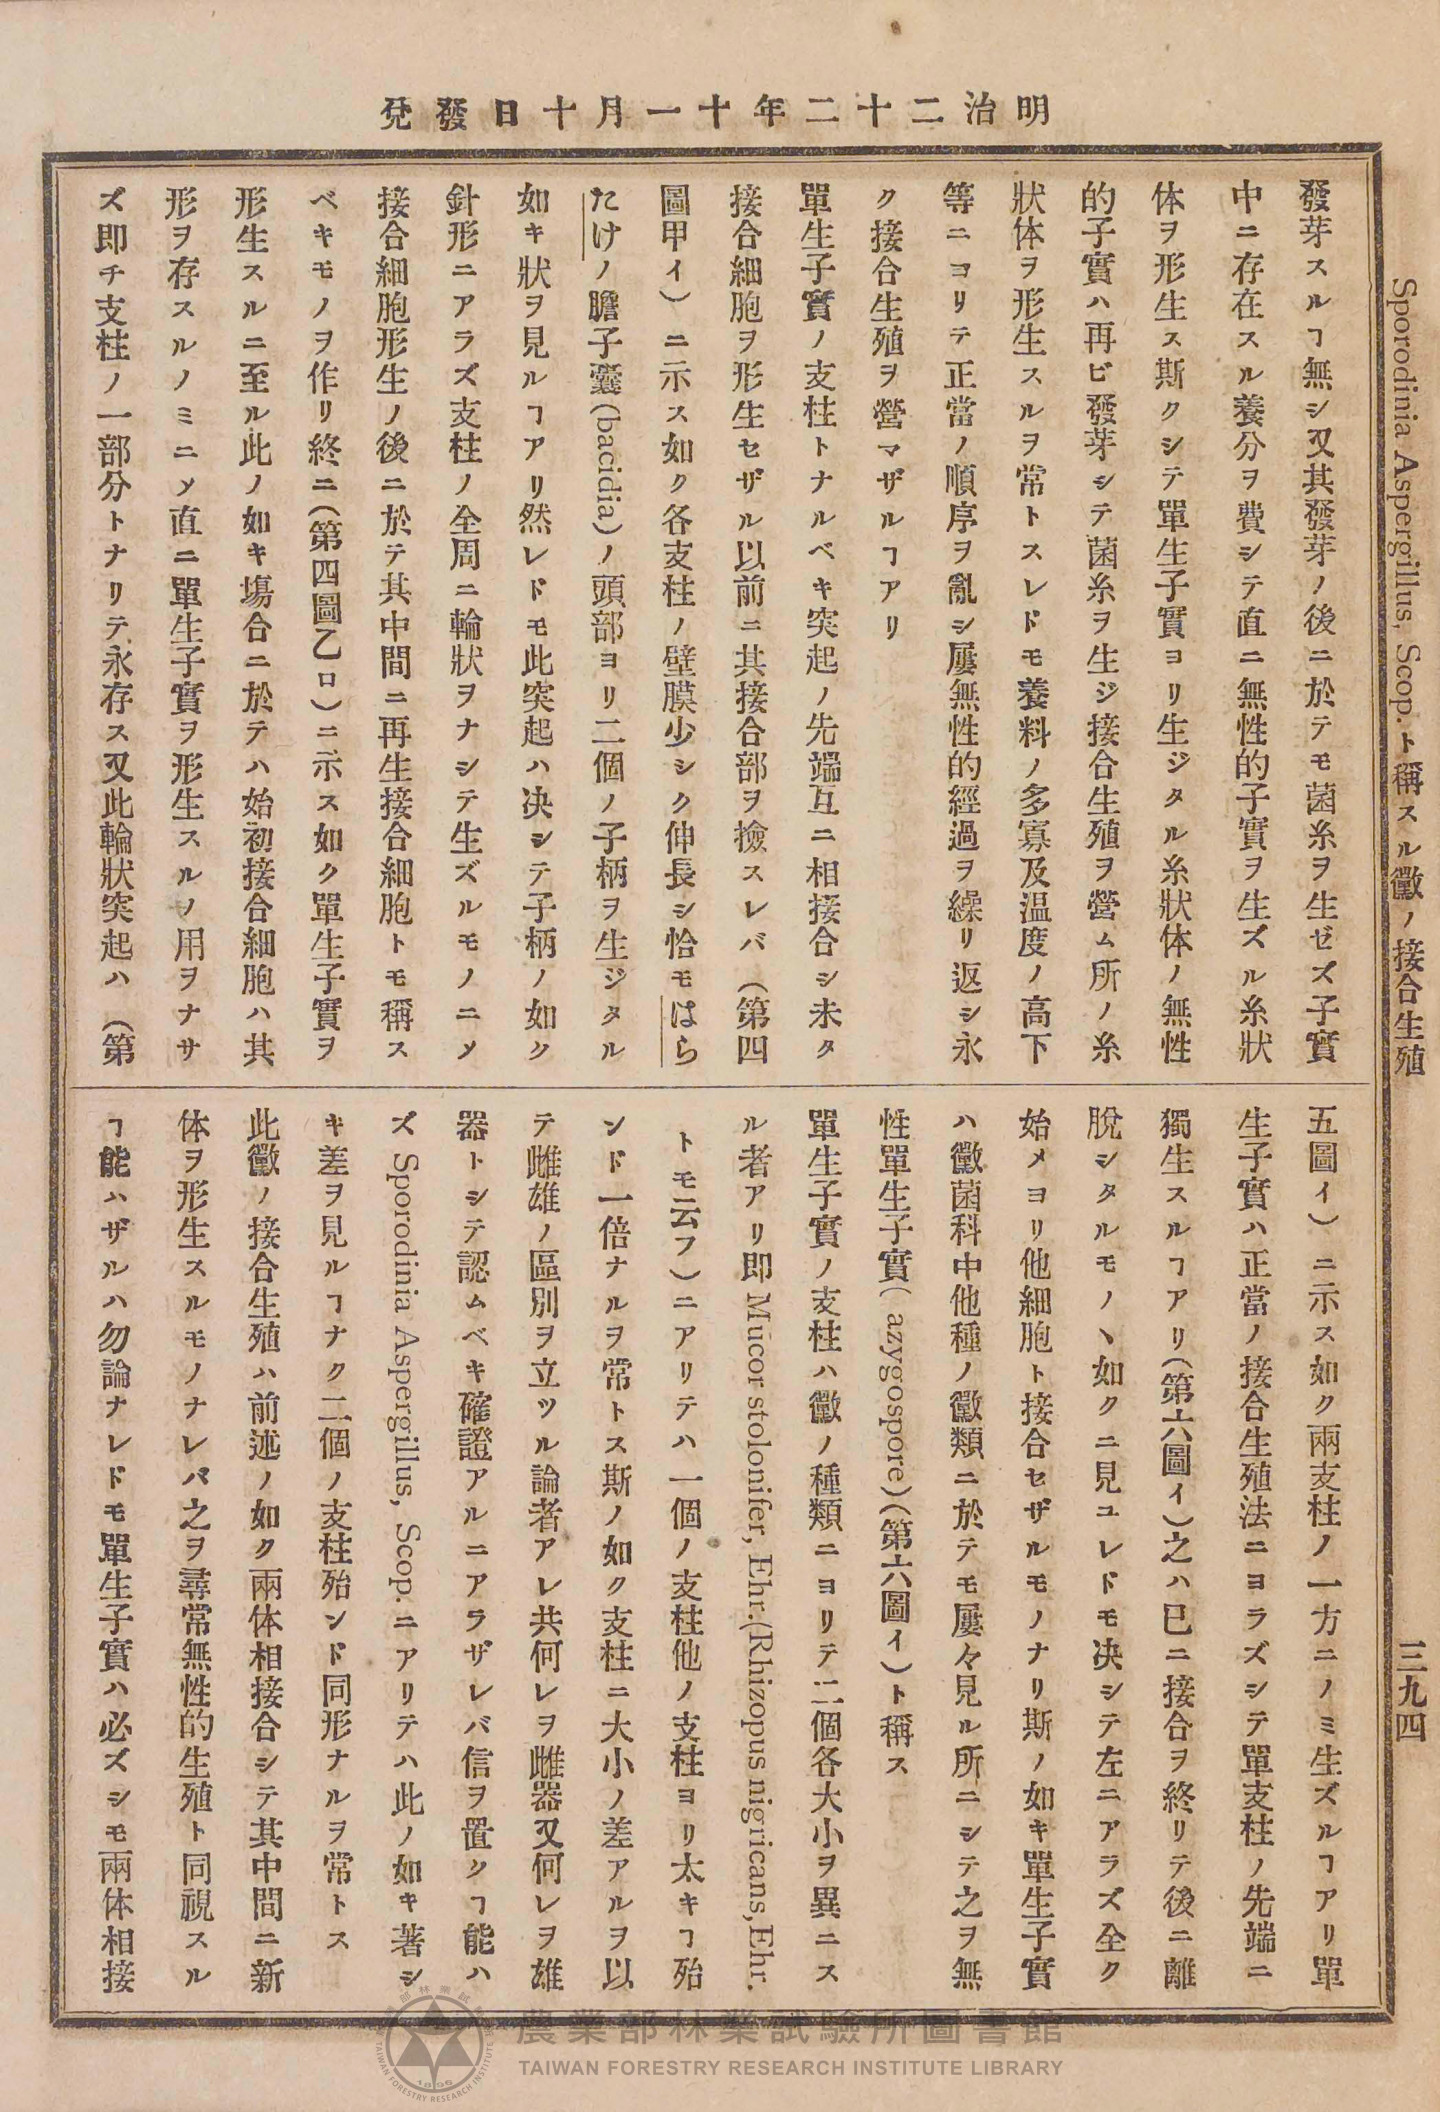 明治二十二年十一月十日發兌
Sporodinia Aspergillus, Scop. ト稱スル黴ノ接合生殖
三九四
發芽スルヿ無シ又其發芽ノ後ニ於テモ菌糸ヲ生ゼズ子實
中ニ存在スル養分ヲ費シテ直ニ無性的子實ヲ生ズル糸狀
体ヲ形生ス斯クシテ單生子實ヨリ生ジタル糸狀体ノ無性
的子實ハ再ビ發芽シテ菌糸ヲ生ジ接合生殖ヲ營ム所ノ糸
狀体ヲ形生スルヲ常トスレドモ養料ノ多寡及溫度ノ高下
等ニヨリテ正當ノ順序ヲ亂シ屢無性的經過ヲ繰リ返シ永
ク接合生殖ヲ營マザルヿアリ
單生子實ノ支柱トナルベキ突起ノ先端互ニ相接合シ未タ
接合細胞ヲ形生セザル以前ニ其接合部ヲ撿スレバ（第四
圖甲イ）ニ示ス如ク各支柱ノ壁膜少シク伸長シ恰モはら
たけノ膽子囊(bacidia)ノ頭部ヨリ二個ノ子柄ヲ生ジタル
如キ狀ヲ見ルヿアリ然レドモ此突起ハ决シテ子柄ノ如ク
針形ニアラズ支柱ノ全周ニ輪狀ヲナシテ生ズルモノニメ
接合細胞形生ノ後ニ於テ其中間ニ再生接合細胞トモ稱ス
ベキモノヲ作リ終ニ（第四圖乙ロ）ニ示ス如ク單生子實ヲ
形生スルニ至ル此ノ如キ塲合ニ於テハ始初接合細胞ハ其
形ヲ存スルノミニメ直ニ單生子實ヲ形生スルノ用ヲナサ
ズ即チ支柱ノ一部分トナリテ永存ス又此輪狀突起ハ（第
五圖イ）ニ示ス如ク兩支柱ノ一方ニノミ生ズルヿアリ單
生子實ハ正當ノ接合生殖法ニヨラズシテ單支柱ノ先端ニ
獨生スルヿアリ（第六圖イ）之ハ已ニ接合ヲ終リテ後ニ離
脫シタルモノヽ如クニ見ユレドモ决シテ左ニアラズ全ク
始メヨリ他細胞ト接合セザルモノナリ斯ノ如キ單生子實
ハ黴菌科中他種ノ黴類ニ於テモ屢々見ル所ニシテ之ヲ無
性單生子實( azygospore)（第六圖イ）ト稱ス
單生子實ノ支柱ハ黴ノ種類ニヨリテ二個各大小ヲ異ニス
ル者アリ即 Mucor stolonifer, Ehr.(Rhizopus nigricans,Ehr.
トモ云フ）ニアリテハ一個ノ支柱他ノ支柱ヨリ太キヿ殆
ンド一倍ナルヲ常トス斯ノ如ク支柱ニ大小ノ差アルヲ以
テ雌雄ノ區別ヲ立ツル論者アレ共何レヲ雌器又何レヲ雄
器トシテ認ムベキ確證アルニアラザレバ信ヲ置クヿ能ハ
ズ Sporodinia Aspergillus, Scop. ニアリテハ此ノ如キ著シ
キ差ヲ見ルヿナク二個ノ支柱殆ンド同形ナルヲ常トス
此黴ノ接合生殖ハ前述ノ如ク兩体相接合シテ其中間ニ新
体ヲ形生スルモノナレバ之ヲ尋常無性的生殖ト同視スル
ヿ能ハザルハ勿論ナレドモ單生子實ハ必ズシモ兩体相接
農業部林業試驗所圖書館
TAIWAN FORESTRY RESEARCH INSTITUTE LIBRARY